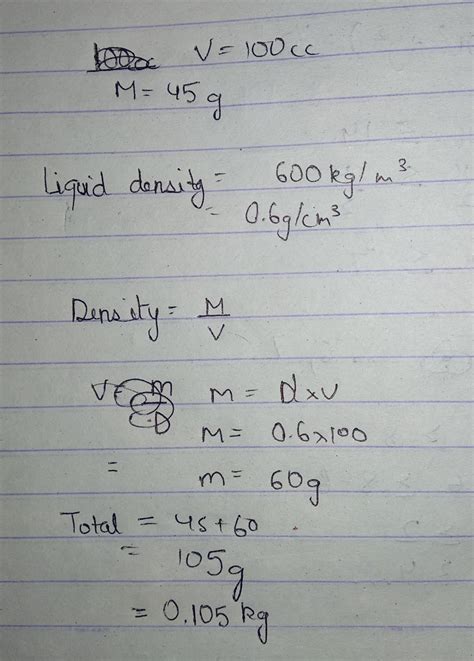 V = 100cc
M = 45g
Liquid density = 600 kg/m³
= 0.6g/cm³
Density = M/V
M = D×V
M = 0.6×100
= m = 60g
Total = 45+60
= 105g
= 0.105 kg